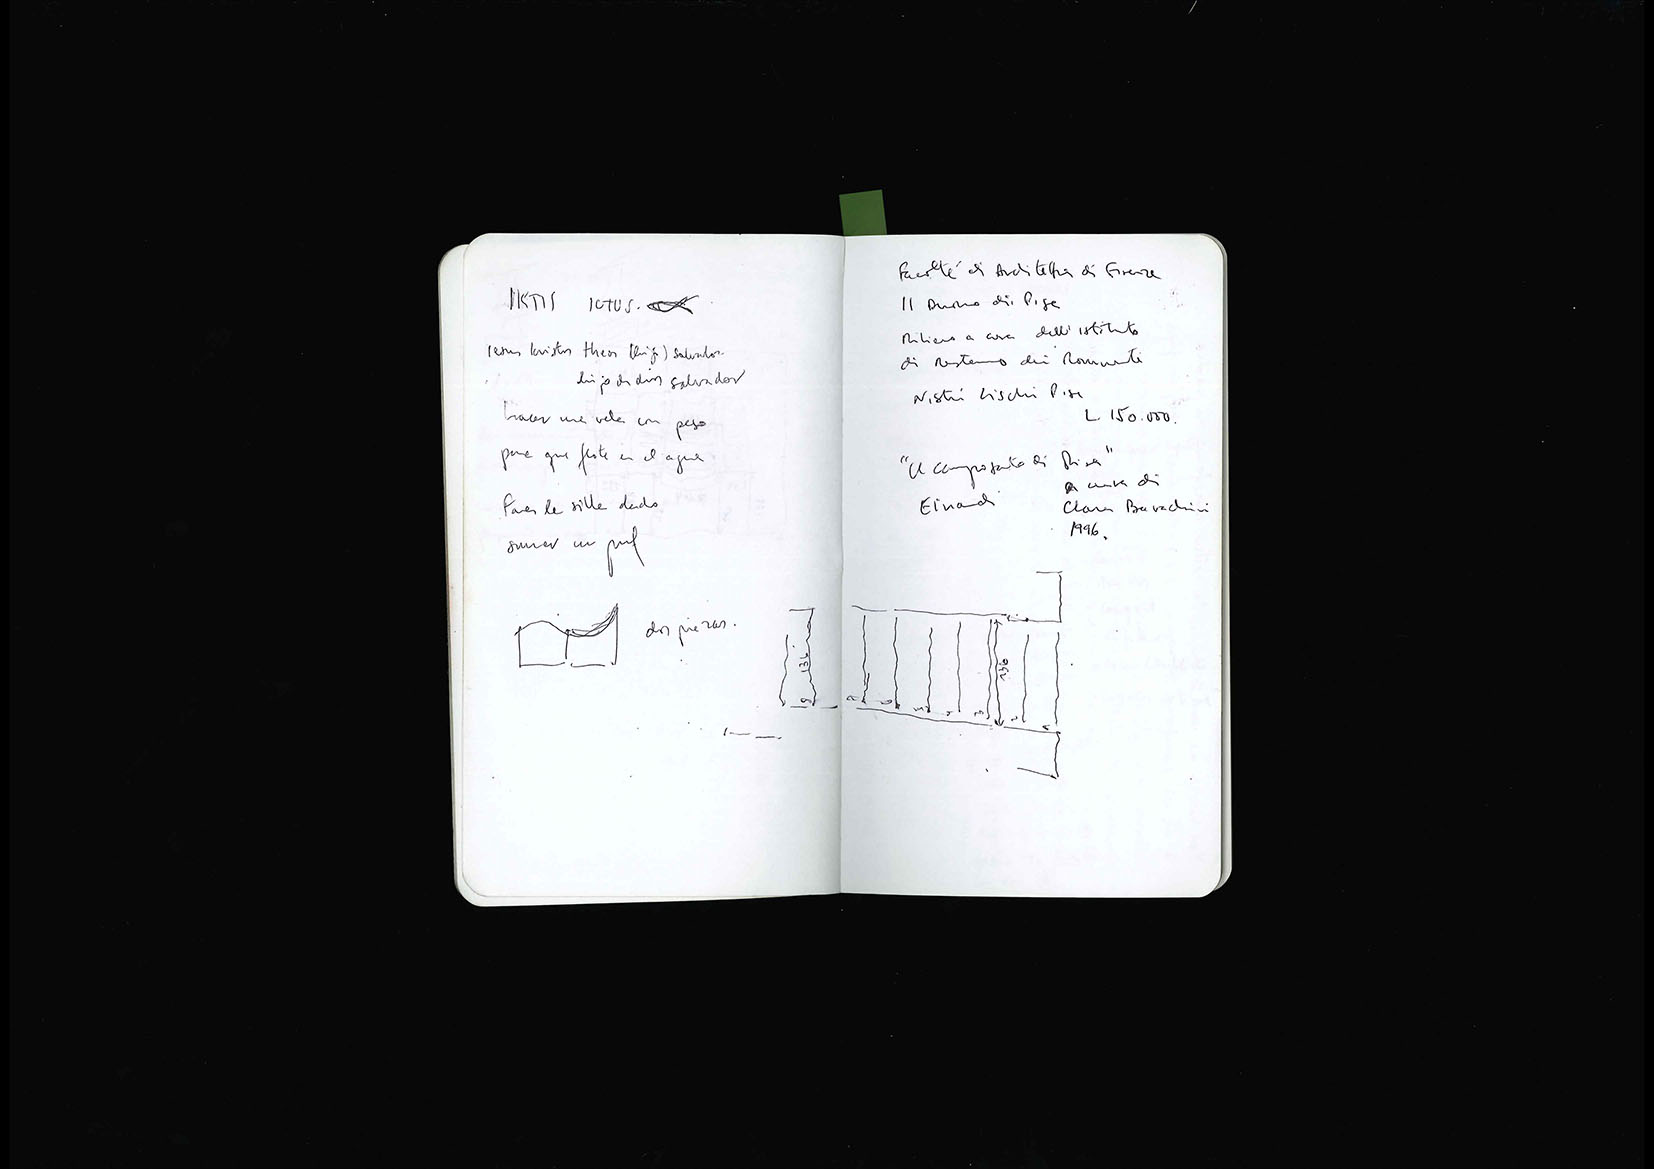 IKTIS ICTUS.
Kristos theos (hijo) salvador
hijo de dios salvador
hacer una vela con peso
para que flote en el agua
silla dado
sumar un puf
dos piezas.
136
Facoltá di Architettura di Firenze
Il Duomo di Pisa
Rilievo a cura dell'istituto
di Restauro dei Monumenti
Nistri Lischi Pisa
L. 150.000.
"Il camposanto di Pisa"
a cura di
Einaudi
Clara Baracchini
1996.